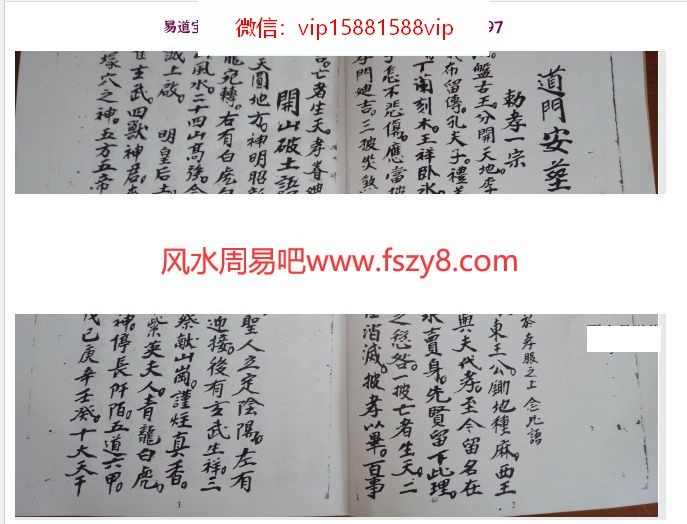 易道宝
微信：vip15881588vip
97
道門安塋
勅孝一宗
盤古王。分開天地。李
代布留傳。孔夫子。禮義
丁蘭刻木。王祥卧氷
怎不悲傷。應當披
門廸吉。三披哭煞
亡者生天。孝眷
開山破土語
天圓地方。神明昭
龍宛轉。右有白虎
山風水。二十四山高強。今
誠上啟。 明皇后土
玄武。四獸神君。
塚穴之神。五方五帝
风水周易吧www.fszy8.com
於孝服之上 念此語
東王公。鋤地種麻。西王
與夫代孝。至今留名在
賣身。先賢留下此理。
之愆咎。一披亡者生天。二
消滅。披孝以畢。百事
2
聖人立定陰陽。左有
迎接。後有玄武生祥。三
祭献山崗。謹炷真香。
紫英夫人。青龍白虎。
神。停長阡陌。五道六甲。
戊己庚辛壬癸。十大天干
3